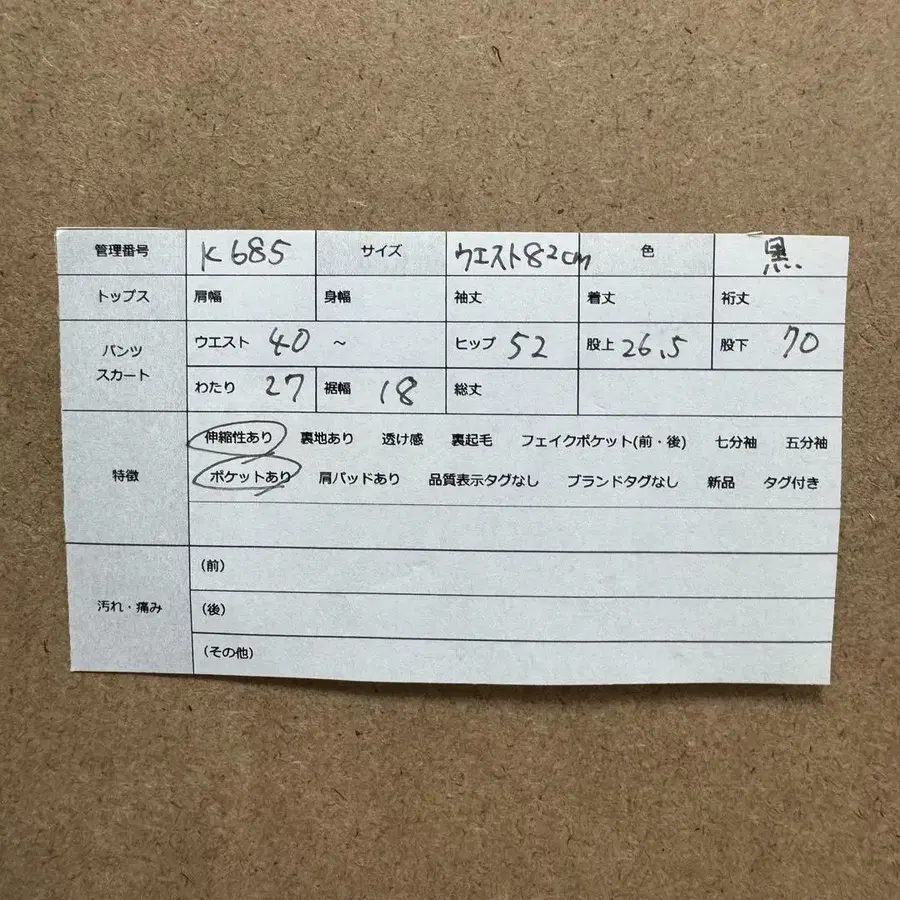 管理番号 K685 サイズ ウエスト82cm 色 黒
トップス 肩幅 身幅 袖丈 着丈 裄丈
パンツ スカート ウエスト 40 ~ ヒップ 52 股上 26.5 股下 70
わたり 27 裾幅 18 総丈
特徴 伸縮性あり 裏地あり 透け感 裏起毛 フェイクポケット(前・後) 七分袖 五分袖
ポケットあり 肩パッドあり 品質表示タグなし ブランドタグなし 新品 タグ付き
汚れ・痛み (前)
(後)
(その他)